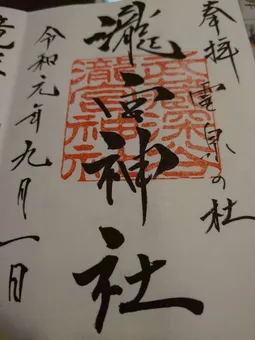 奉拝 霊泉の杜
瀧宮神社
武州深谷瀧宮神社
令和元年九月一日